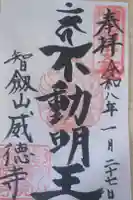 奉拝 令和八年一月二十七日
不動明王
智劔山威徳寺